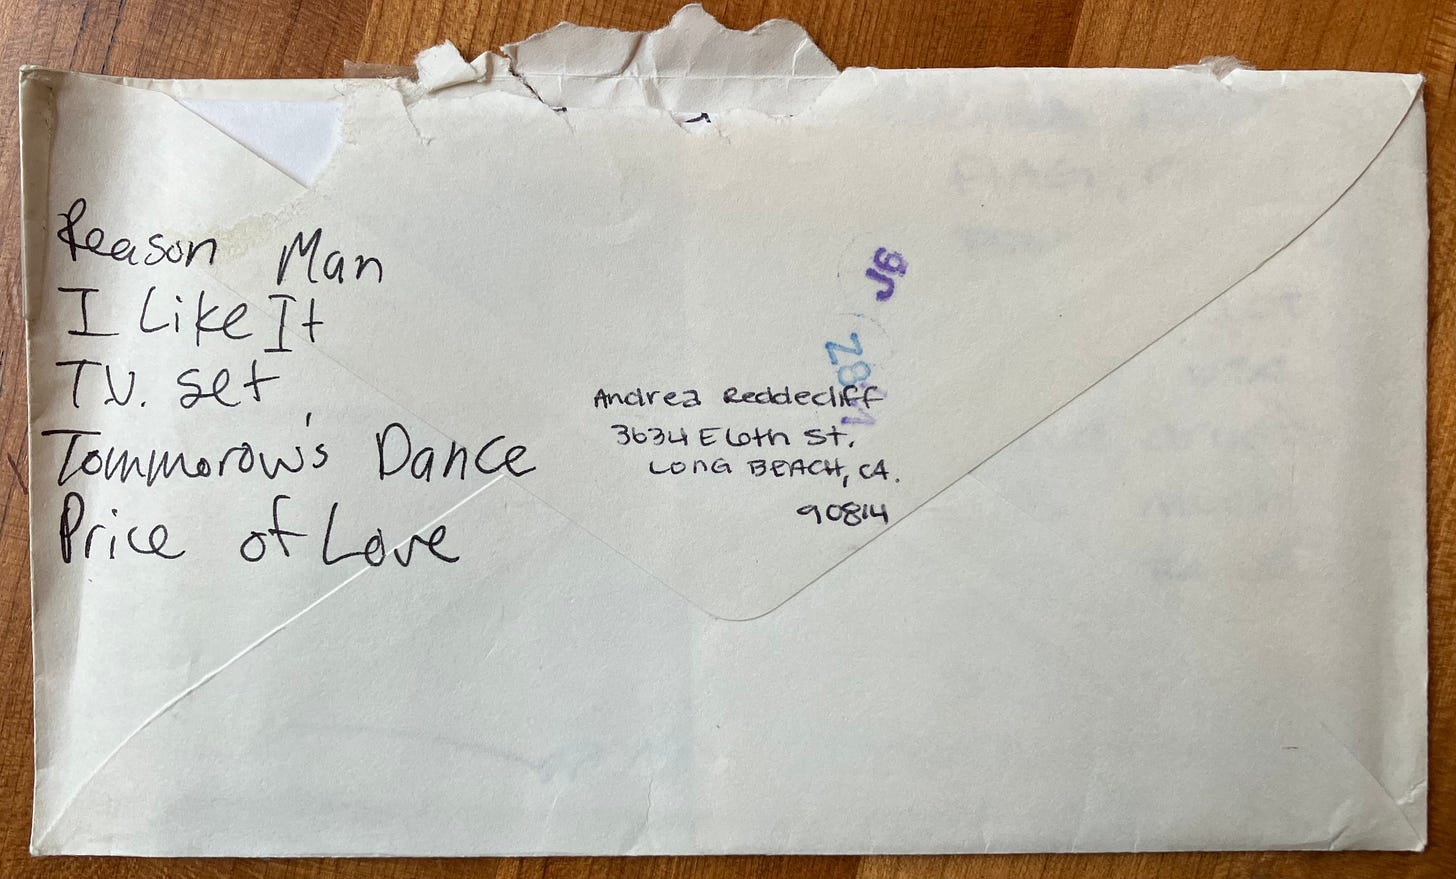 Reason Man
I Like It
T.V. set
Tommorow's Dance
Price of Love
Andrea Reddecliff
3634 E 6th St.
LONG BEACH, CA.
90814